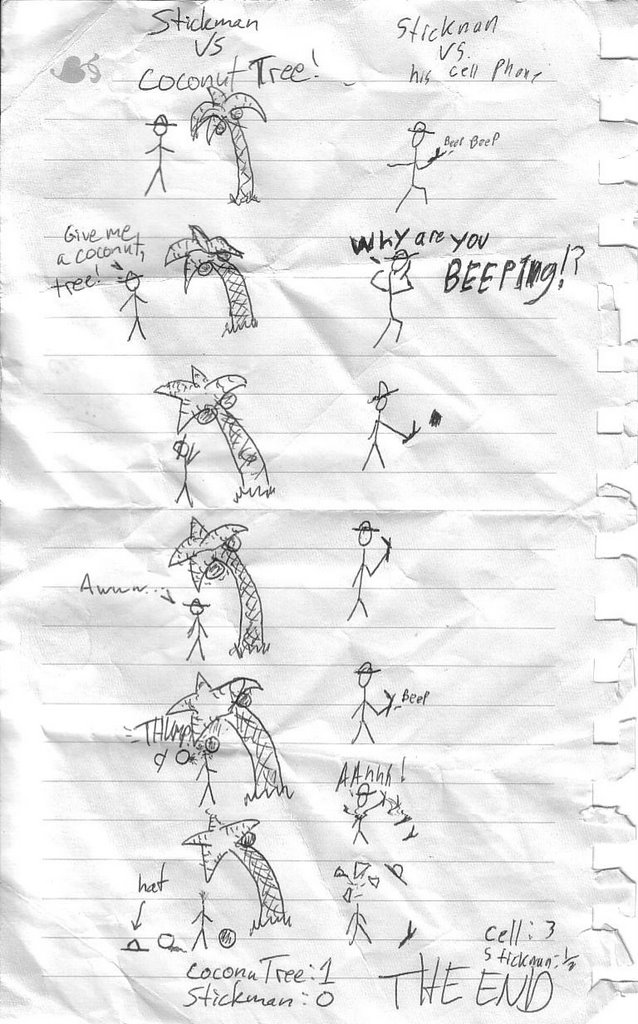 Stickman
VS
Coconut Tree!
Give me
a coconut,
tree!
Awww...
THUMP
hat
CoconuTree: 1
Stickman: 0
Stickman
VS.
his cell Phone
Beep Beep
Why are you
BEEPing!?
Beep
AAhhh!
Cell: 3
Stickman: 1/2
THE END